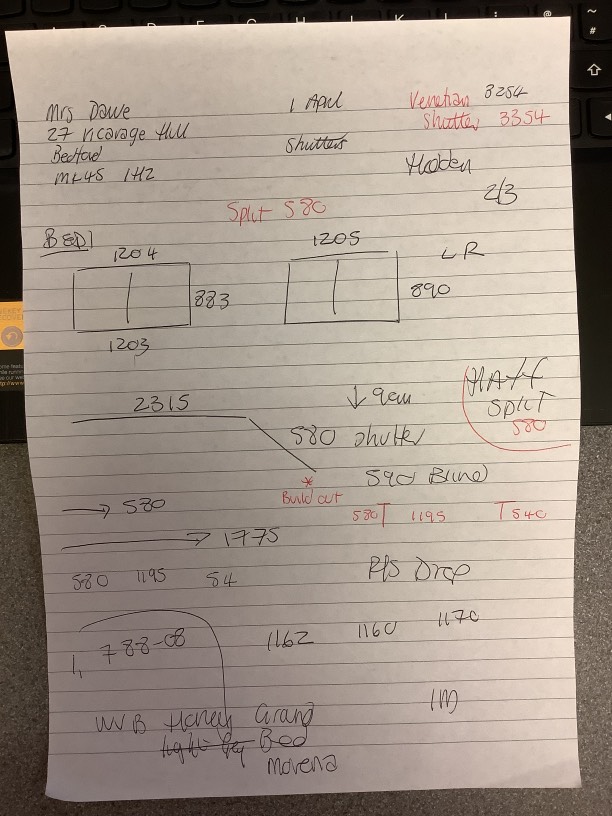 Mrs Dawe 1 April Venetian 3254
27 Vicarage Hill Shutter 3354
Bedford Shutters
MK45 1HZ Hidden
2/3
Split 580
BED 1
1204 1205 L R
883 890
1203
2315 ↓ 9cm HALF
SPLIT
580 shutter 580
590 Blind
*
Build out
→ 580
580T 1195 T540
→ 1775
580 1195 54 P/S Drop
1, 788-08 1162 1160 1170
1M
WVB Honey Grand
Bed
Movena